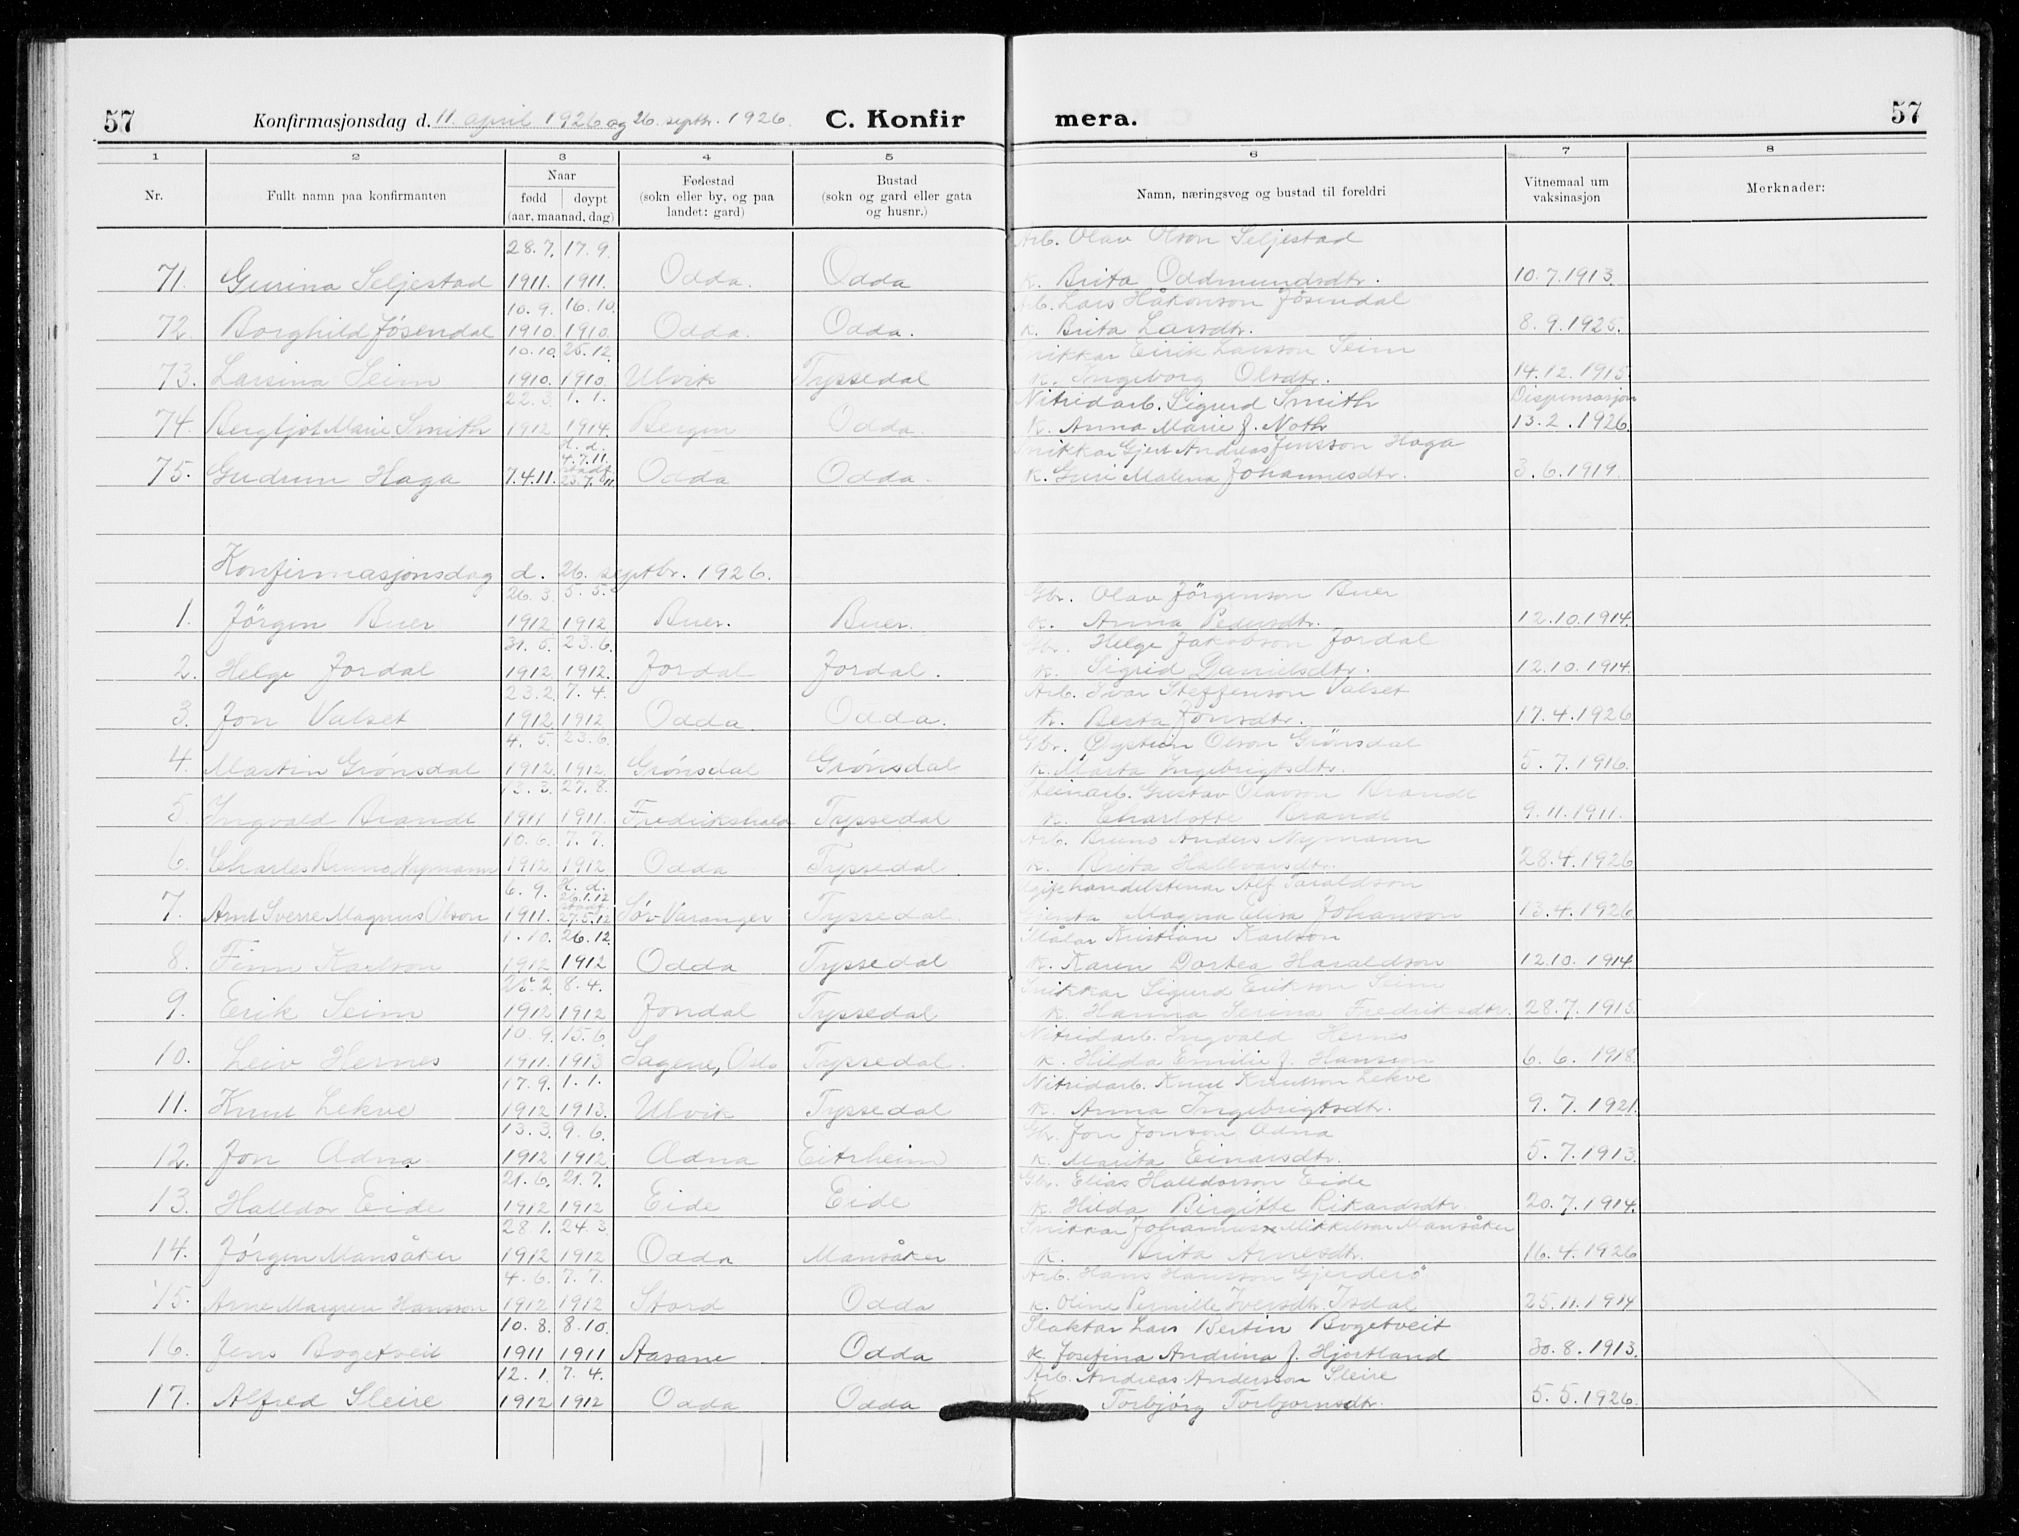 57 Konfirmasjonsdag d. 11. april 1926 og 26. septbr. 1926. C. Konfir mera. 57
1 2 3 4 5 6 7 8
Nr. Fullt namn paa konfirmanten Naar fødd døypt (aar, maanad, dag) Fødestad (sokn eller by, og paa landet: gard) Bustad (sokn og gard eller gata og husnr.) Namn, næringsveg og bustad til foreldri Vitnemaal um vaksinasjon Merknader:
28.7. 17.9. Arb. Olav Olson Seljestad
71. Gurina Seljestad 1911. 1911. Odda. Odda k. Brita Oddmundsdtr. 10.7.1913.
10.9. 16.10. Arb. Lars Håkonson Jösendal
72. Borghild Jösendal 1910 1910 Odda. Odda. k. Brita Larsdtr. 8.9.1925.
10.10. 25.12. Snikkar Eirik Larsson Seim
73. Larsina Seim 1910. 1910. Ulvik Tyssedal k. Ingeborg Olsdtr. 14.12.1915.
22.3. 1.1. Nitridarb. Sigurd Smith Dispensasjon
74. Bergljot Marie Smith 1912 1914. Bergen Odda. k. Anna Marie J. Noth 13.2.1926.
H. d. 4.7.11. Snikkar Gjert Andreas Jensson Haga
75. Gudrun Haga 7.4.11. stadf. 23.7.11. Odda Odda. k. Guri Malena Johannesdtr. 3.6.1919.
Konfirmasjonsdag d. 26. septbr. 1926.
26.3. 5.5. Gbr. Olav Jörgenson Buer
1. Jörgen Buer 1912 1912 Buer. Buer. k. Anna Pedersdtr. 12.10.1914.
31.5. 23.6. Gbr. Helge Jakobson Jordal
2. Helge Jordal 1912 1912. Jordal Jordal. k. Sigrid Danielsdtr. 12.10.1914.
23.2. 7.4. Arb. Ivar Steffenson Valset
3. Jon Valset 1912 1912 Odda Odda. k. Berta Jonsdtr. 17.4.1926
4.5. 23.6. Gbr. Øystein Olson Grönsdal
4. Martin Grönsdal 1912. 1912. Grönsdal Grönsdal k. Marta Ingebrigtsdtr. 5.7.1916.
12.3. 27.8. Steinarb. Gustav Olavson Brandt
5. Ingvald Brandt 1911 1911. Fredrikshald Tyssedal k. Charlotte Brandt 9.11.1911.
10.6. 7.7. Arb. Bruno Anders Nymann
6. Charles Bruno Nymann 1912 1912 Odda Tyssedal k. Brita Hallvarsdtr. 28.4.1926
6.9. H. d. 26.1.12 Ugift handelstenar Alf Taraldson
7. Arnt Sverre Magnus Olson 1911. stadf. 27.5.12 Sør-Varanger Tyssedal Gjenta Magna Elisa Johanson 13.4.1926
1.10. 26.12. Målar Kristian Karlson
8. Finn Karlson 1912 1912 Odda Tyssedal k. Karen Dortea Haraldson 12.10.1914.
25.2. 8.4. Snikkar Sigurd Erikson Seim
9. Erik Seim 1912 1912 Jondal Tyssedal k. Hanna Serina Fredriksdtr. 28.7.1915
10.9. 15.6. Nitridarb. Ingvald Hernes
10. Leiv Hernes 1911. 1913 Sagene, Oslo Tyssedal. k. Hilda Emilie J. Hanson 6.6.1918.
17.9. 1.1. Nitridarb. Knut Knutson Lekve
11. Knut Lekve 1912 1913. Ulvik Tyssedal k. Anna Ingebrigtsdtr. 9.7.1921.
13.3. 9.6. Gbr. Jon Jonson Adna
12. Jon Adna 1912 1912. Adna Eitrheim k. Marita Einarsdtr. 5.7.1913.
21.6. 21.7. Gbr. Elias Halldorson Eide
13. Halldor Eide 1912 1912 Eide Eide k. Hilda Birgitte Rikardsdtr. 20.7.1914.
28.1. 24.3. Snikkar Johannes Mikkelson Mansåker
14. Jörgen Mansåker 1912 1912 Odda Mansåker k. Brita Arnesdtr. 16.4.1926
4.6. 7.7. Arb. Hans Hansson Gjerderö
15. Arne Hansson 1912 1912 Stord Odda k. Oline Pernille Iversdtr. Isdal 25.11.1914
10.8. 8.10. Slaktar Lars Bertin Bogetveit
16. Jens Bogetveit 1911 1911 Aasane Odda k. Josefina Andrina J. Hjortland 30.8.1913.
12.1. 7.4. Arb. Andreas Anderson Sleire
17. Alfred Sleire 1912 1912 Odda Odda k. Torbjörg Torbjornsdtr. 5.5.1926.